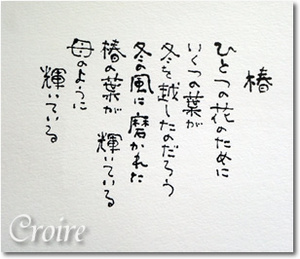 椿
ひとつの花のために
いくつの葉が
冬を越したのだろう
冬の風に磨かれた
椿の葉が 輝いている
母のように
輝いている
Croire